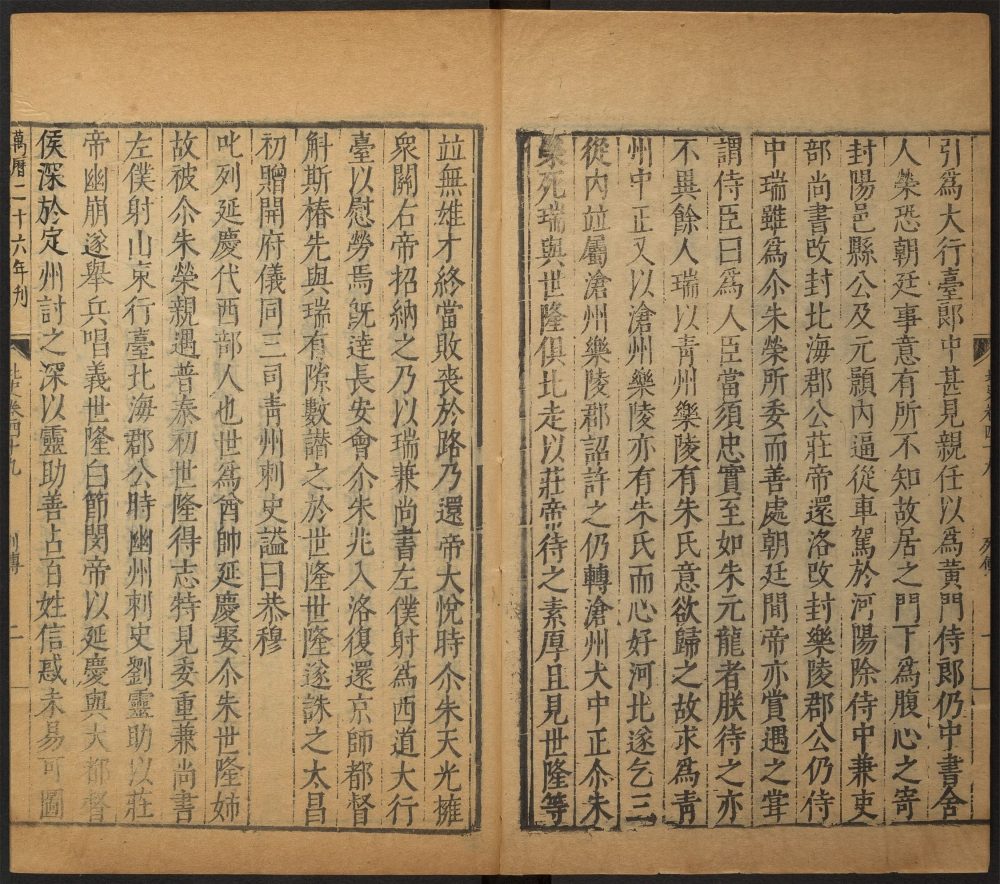 引爲大行臺郎中甚見親任以爲黃門侍郎仍中書舍
人榮恐朝廷事意有所不知故居之門下爲腹心之寄
封陽邑縣公及元顥內逼從車駕於河陽除侍中兼吏
部尚書改封北海郡公莊帝還洛改封樂陵郡公仍侍
中瑞雖爲尒朱榮所委而善處朝廷間帝亦賞遇之甞
謂侍臣曰爲人臣當須忠實至如朱元龍者朕待之亦
不異餘人瑞以青州樂陵有朱氏意欲歸之故求爲青
州中正又以滄州樂陵亦有朱氏而心好河北遂乞三
從內竝屬滄州樂陵郡詔許之仍轉滄州大中正尒朱
榮死瑞與世隆俱北走以莊帝待之素厚且見世隆等
竝無雄才終當敗喪於路乃還帝大悅時尒朱天光擁
衆關右帝招納之乃以瑞兼尚書左僕射爲西道大行
臺以慰勞焉旣達長安會尒朱兆入洛復還京師都督
斛斯椿先與瑞有隙數譖之於世隆世隆遂誅之太昌
初贈開府儀同三司青州刺史謚曰恭穆
叱列延慶代西部人也世爲酋帥延慶娶尒朱世隆姊
故被尒朱榮親遇普泰初世隆得志特見委重兼尚書
左僕射山東行臺北海郡公時幽州刺史劉靈助以莊
帝幽崩遂舉兵唱義世隆白節閔帝以延慶與大都督
侯深於定州討之深以靈助善占百姓信惑未易可圖
萬曆二十六年刊
北史卷四十九
列傳
二